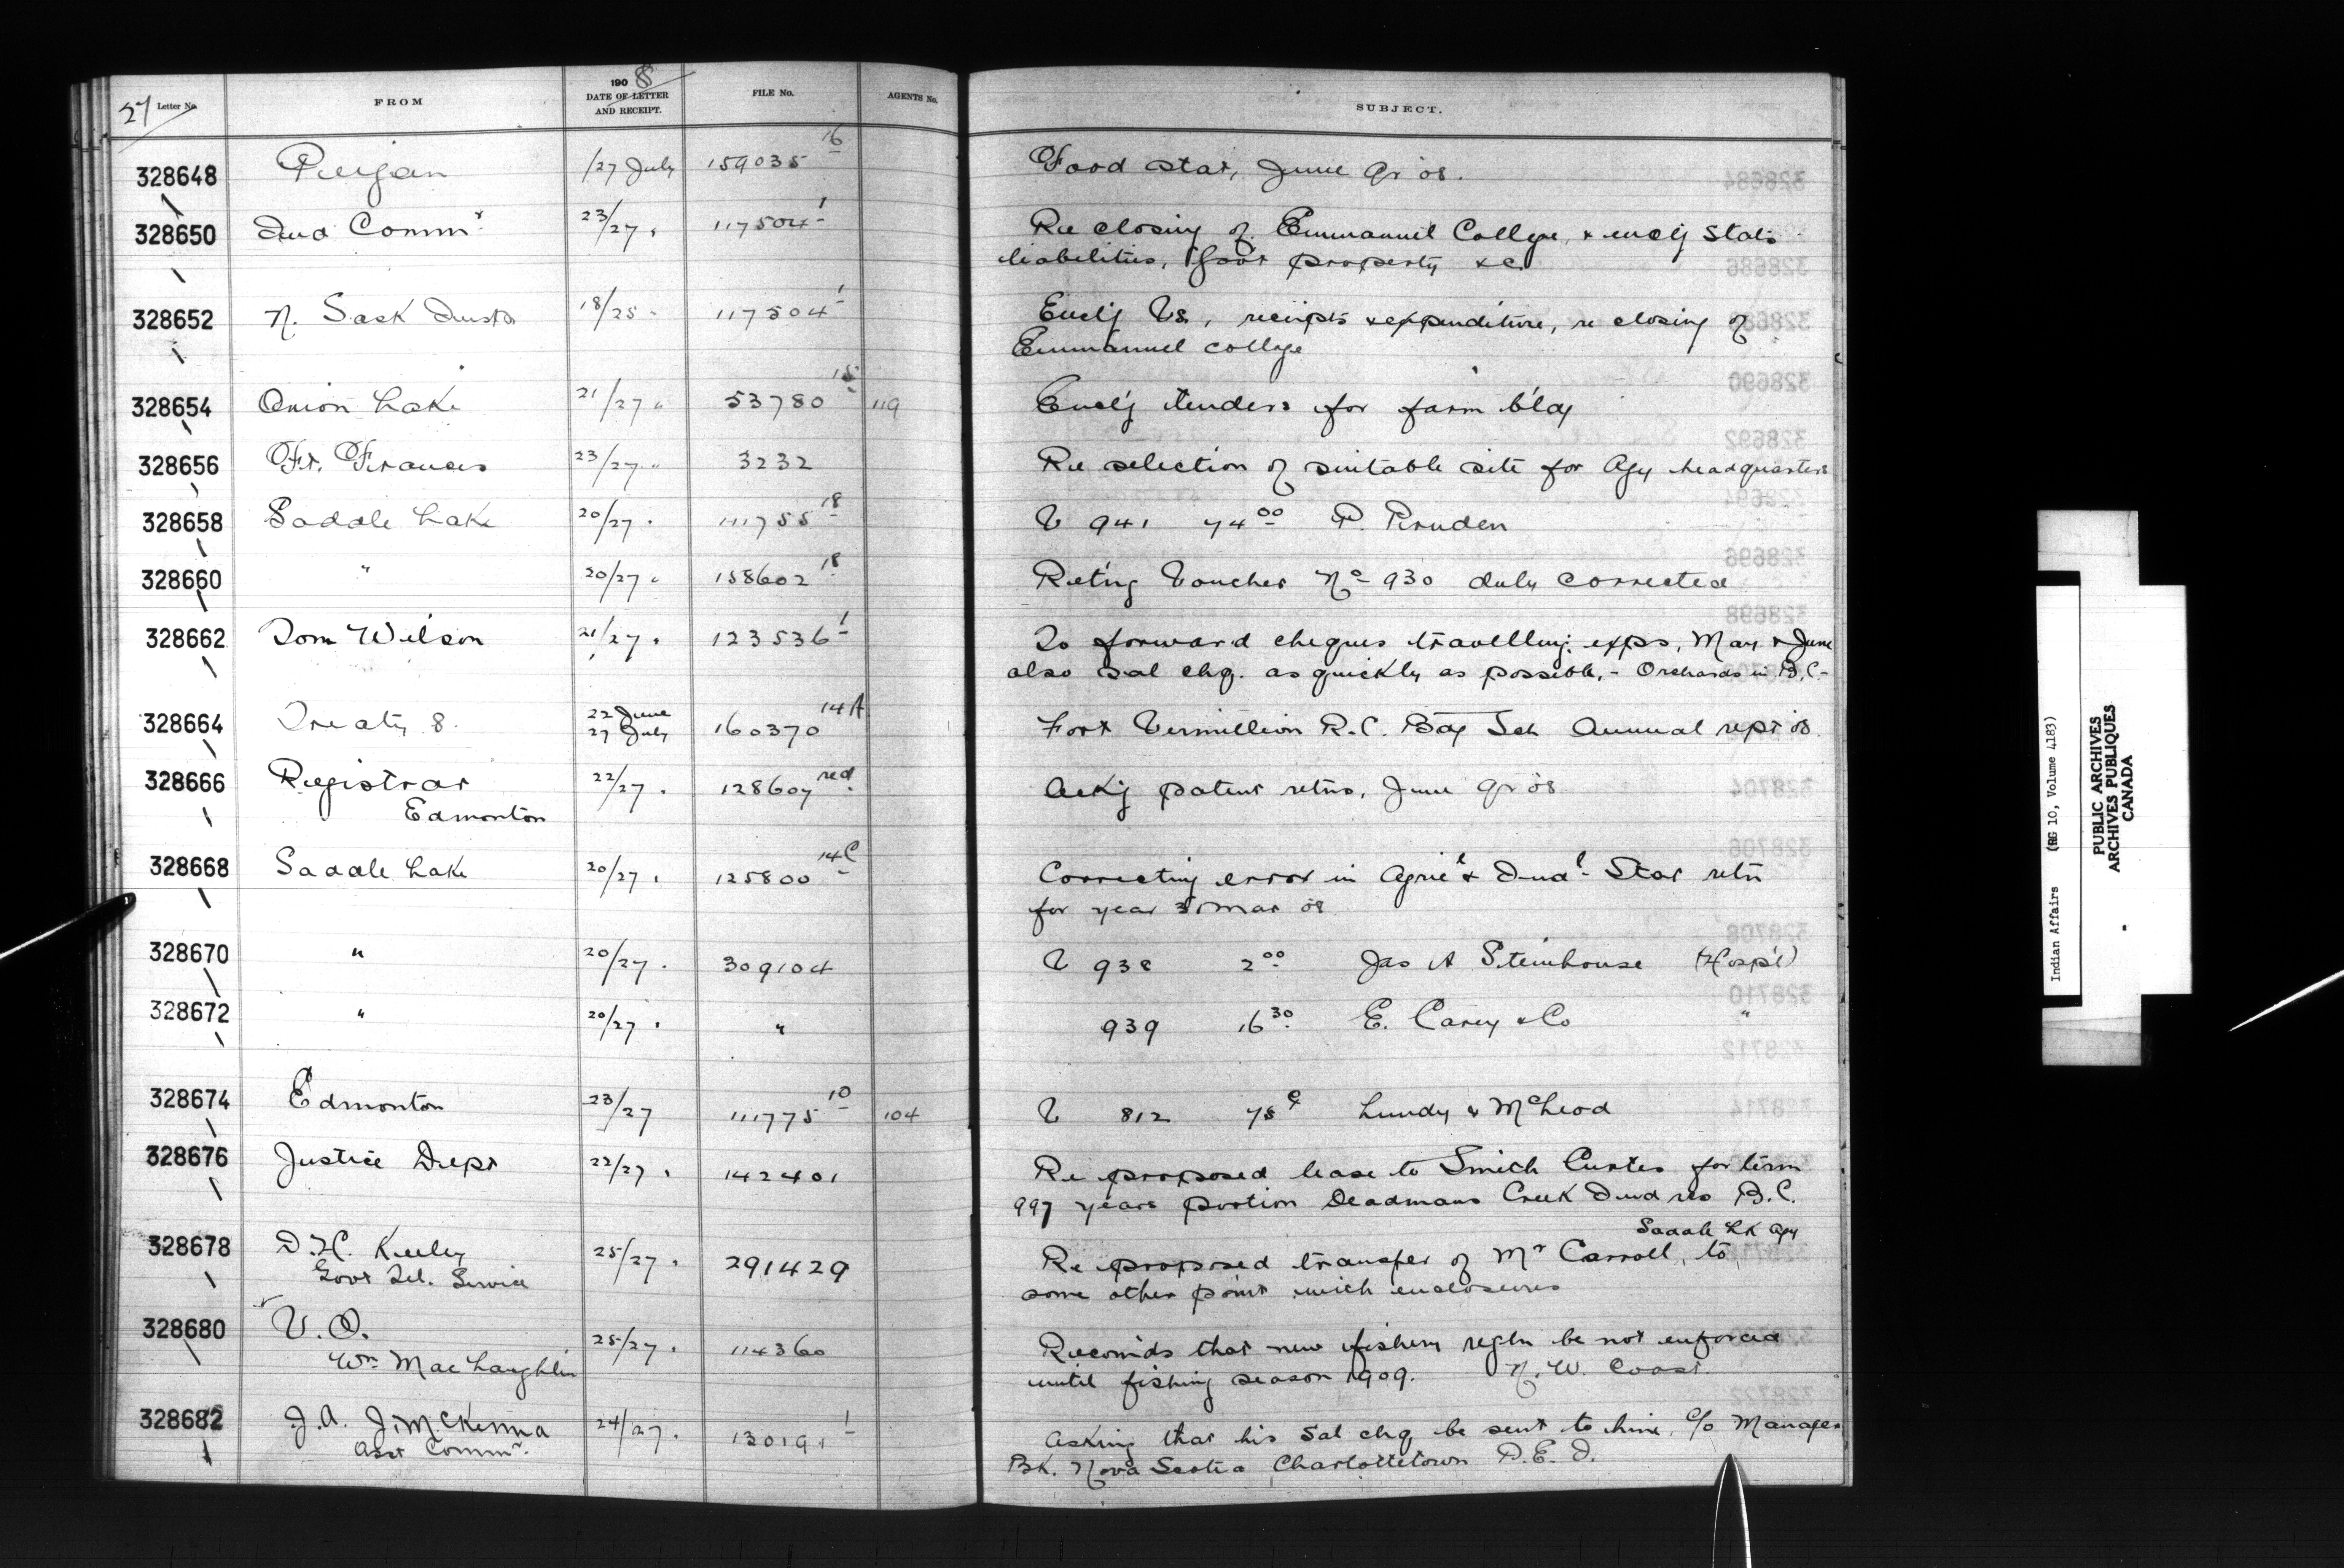 27 Letter No. FROM 1908 DATE OF LETTER AND RECEIPT. FILE No. AGENTS No. SUBJECT.
328648 Peigan /27 July 159035 16 Food stat, June qr '08.
328650 Ind Commr 23/27 " 117504 1 Re closing of Emmanuel College, & enclg Stats
liabilities, Govt property &c
328652 N. Sask Insptr 18/25 " 117504 1 Enclg Vs, receipts & expenditure, re closing of
Emmanuel college
328654 Onion Lake 21/27 " 53780 15 119 Encl'g tenders for farm b'ldg
328656 Ft. Frances 23/27 " 3232 Re selection of suitable site for Agy headquarters
328658 Saddle Lake 20/27 " 111755 18 V 941 74 00 P. Pruden
328660 " 20/27 " 158602 18 Ret'ng Voucher No 930 duly corrected
328662 Tom Wilson 21/27 " 123536 1 To forward cheques travelling exps, May & June
also sal chq. as quickly as possible, - Orchards in B.C.-
328664 Treaty 8. 22 June 27 July 160370 14A Fort Vermillion R.C. Bdg Sch Annual rept '08
328666 Registrar 22/27 " 128607 red. Ackg patent retns, June qr '08
Edmonton
328668 Saddle Lake 20/27 " 125800 14C Correcting error in Agricl & Indl Stat retn
for year 31 Mar 08
328670 " 20/27 " 309104 V 938 2 00 Jas A Steinhouse (Hosp'l)
328672 " 20/27 " " 939 16 30 E. Carey & Co "
328674 Edmonton 23/27 111775 10 104 V 812 75 c Lundy & McLeod
328676 Justice Dept 22/27 " 142401 Re proposed lease to Smith Curtis for term
997 years portion Deadmans Creek Ind res B.C.
Saddle Lk Agy
328678 D.H. Keeley 25/27 " 291429 Re proposed transfer of Mr Carroll, to
Govt Tel. Service some other point with enclosures
328680 V.O. 25/27 " 114360 Recomds that new fishery regln be not enforced
Wm MacLaughlin until fishing season 1909. N.W. Coast.
328682 J.A. J. McKenna 24/27 " 130191 1 Asking that his sal chq be sent to him, c/o Manager
Asst Commr. Bk. Nova Scotia Charlottetown P.E.I.
Indian Affairs (RG 10, Volume 4183)
PUBLIC ARCHIVES
ARCHIVES PUBLIQUES
CANADA